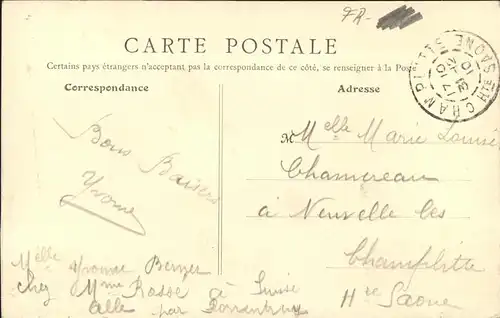 FR-
CARTE POSTALE
Certains pays étrangers n'acceptant pas la correspondance de ce côté, se renseigner à la Poste
Correspondance
Adresse
Bons Baisers
Yvonne
Melle Marie Louise
à Neuvelle les
Champlitte
Hte Saone
Melle Yvonne
chez Mme Rosse à
Alle par Porrentruy Suisse
CHAMPLITTE
HTE SAÔNE